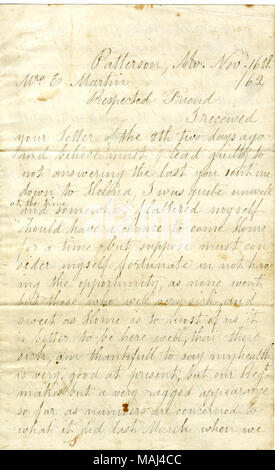 Patterson, Mo. Nov. 16th
/62
Mrs E. Martin
Respected Friend
I received
your letter of the 8th two days ago
and believe must plead guilty to
not answering the last you sent me
down to Helena, I was quite unwell
at the time
and somewhat flattered myself
should have a chance to come home
for a time, but suppose must con
sider myself fortunate in not hav
ing the opportunity, as none went
but those who were very sick, and
sweet as Home is to most of us it
is better to be here well, than there
sick, am thankfull to say my health
is very good at present, but our Regt
makes but a very ragged appearance
so far as numbers are concerned to
what it did last March when we
alamy
Image ID: MAJ4CC
www.alamy.com